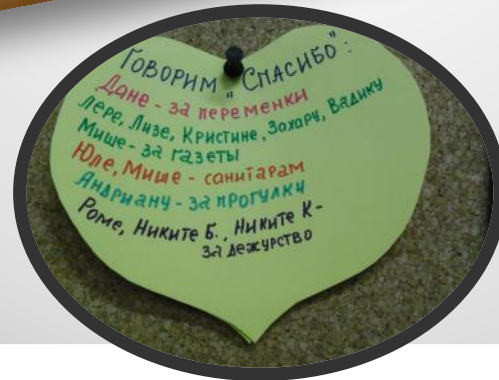 Говорим „Спасибо":
Дане - за переменки
Лере, Лизе, Кристине, Захару, Вадику
Мише - за газеты
Юле, Мише - санитарам
Андриану - за прогулки
Роме, Никите Б., Никите К -
за дежурство